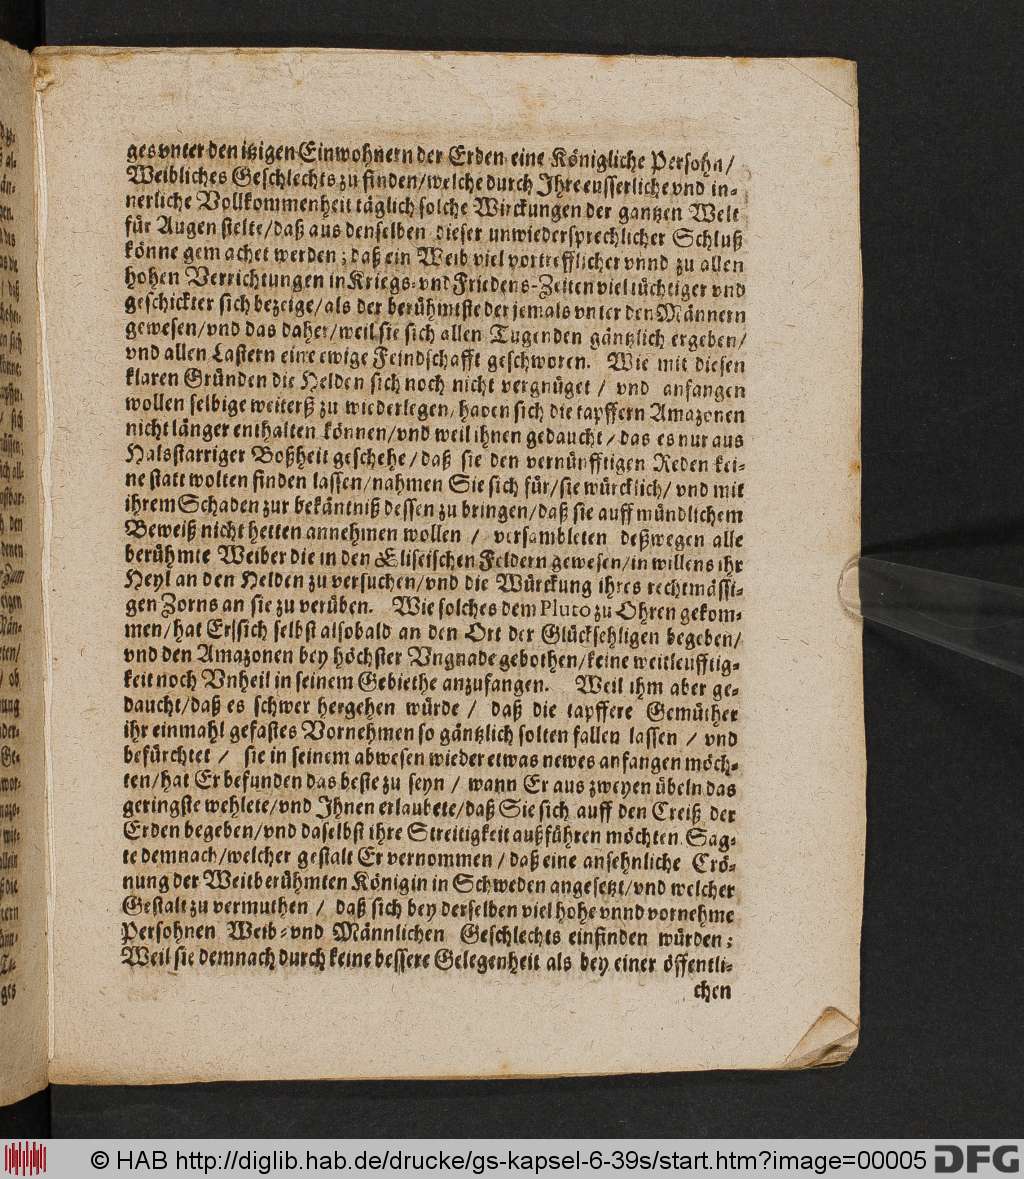 ges vnter den itzigen Einwohnern der Erden eine Königliche Persohn/
Weibliches Geschlechts zu finden/welche durch Ihre eusserliche vnd in-
nerliche Vollkommenheit täglich solche Wirckungen der gantzen Welt
für Augen stelte/daß aus denselben dieser unwiedersprechlicher Schluß
könne gemachet werden; daß ein Weib viel vortrefflicher vnnd zu allen
hohen Verrichtungen in Kriegs- vnd Friedens-Zeiten viel tüchtiger vnd
geschickter sich bezeige/als der berühmtste der jemals vnter den Männern
gewesen/vnd das daher/weil sie sich allen Tugenden gäntzlich ergeben/
vnd allen Lastern eine ewige Feindschafft geschworen. Wie mit diesen
klaren Gründen die Helden sich noch nicht vergnüget / vnd anfangen
wollen selbige weiterß zu wiederlegen/haben sich die tapffern Amazonen
nicht länger enthalten können/vnd weil ihnen gedaucht/das es nur aus
Halsstarriger Boßheit geschehe/daß sie den vernünfftigen Reden kei-
ne statt wolten finden lassen/nahmen Sie sich für/sie würcklich/ vnd mit
ihrem Schaden zur bekäntniß dessen zu bringen/daß sie auff mündlichem
Beweiß nicht hetten annehmen wollen / versambleten deßwegen alle
berühmte Weiber die in den Eliseischen Feldern gewesen/in willens ihr
Heyl an den Helden zu versuchen/vnd die Würckung ihres rechtmässi-
gen Zorns an sie zu verüben. Wie solches dem Pluto zu Ohren gekom-
men/hat Er sich selbst alsobald an den Ort der Glücksehligen begeben/
vnd den Amazonen bey höchster Vngnade gebothen/keine weitleufftig-
keit noch Vnheil in seinem Gebiethe anzufangen. Weil ihm aber ge-
daucht/daß es schwer hergehen würde / daß die tapffere Gemüther
ihr einmahl gefastes Vornehmen so gäntzlich solten fallen lassen / vnd
befürchtet / sie in seinem abwesen wieder etwas newes anfangen möch-
ten/hat Er befunden das beste zu seyn / wann Er aus zweyen übeln das
geringste wehlete/vnd Ihnen erlaubete/daß Sie sich auff den Creiß der
Erden begeben/vnd daselbst ihre Streitigkeit außführen möchten. Sag-
te demnach/welcher gestalt Er vernommen / daß eine ansehnliche Crö-
nung der Weitberühmten Königin in Schweden angesetzt/vnd welcher
Gestalt zu vermuthen / daß sich bey derselben viel hohe vnnd vornehme
Persohnen Weib- vnd Männlichen Geschlechts einfinden würden;
Weil sie demnach durch keine bessere Gelegenheit als bey einer öffentli-
chen
© HAB http://diglib.hab.de/drucke/gs-kapsel-6-39s/start.htm?image=00005 DFG